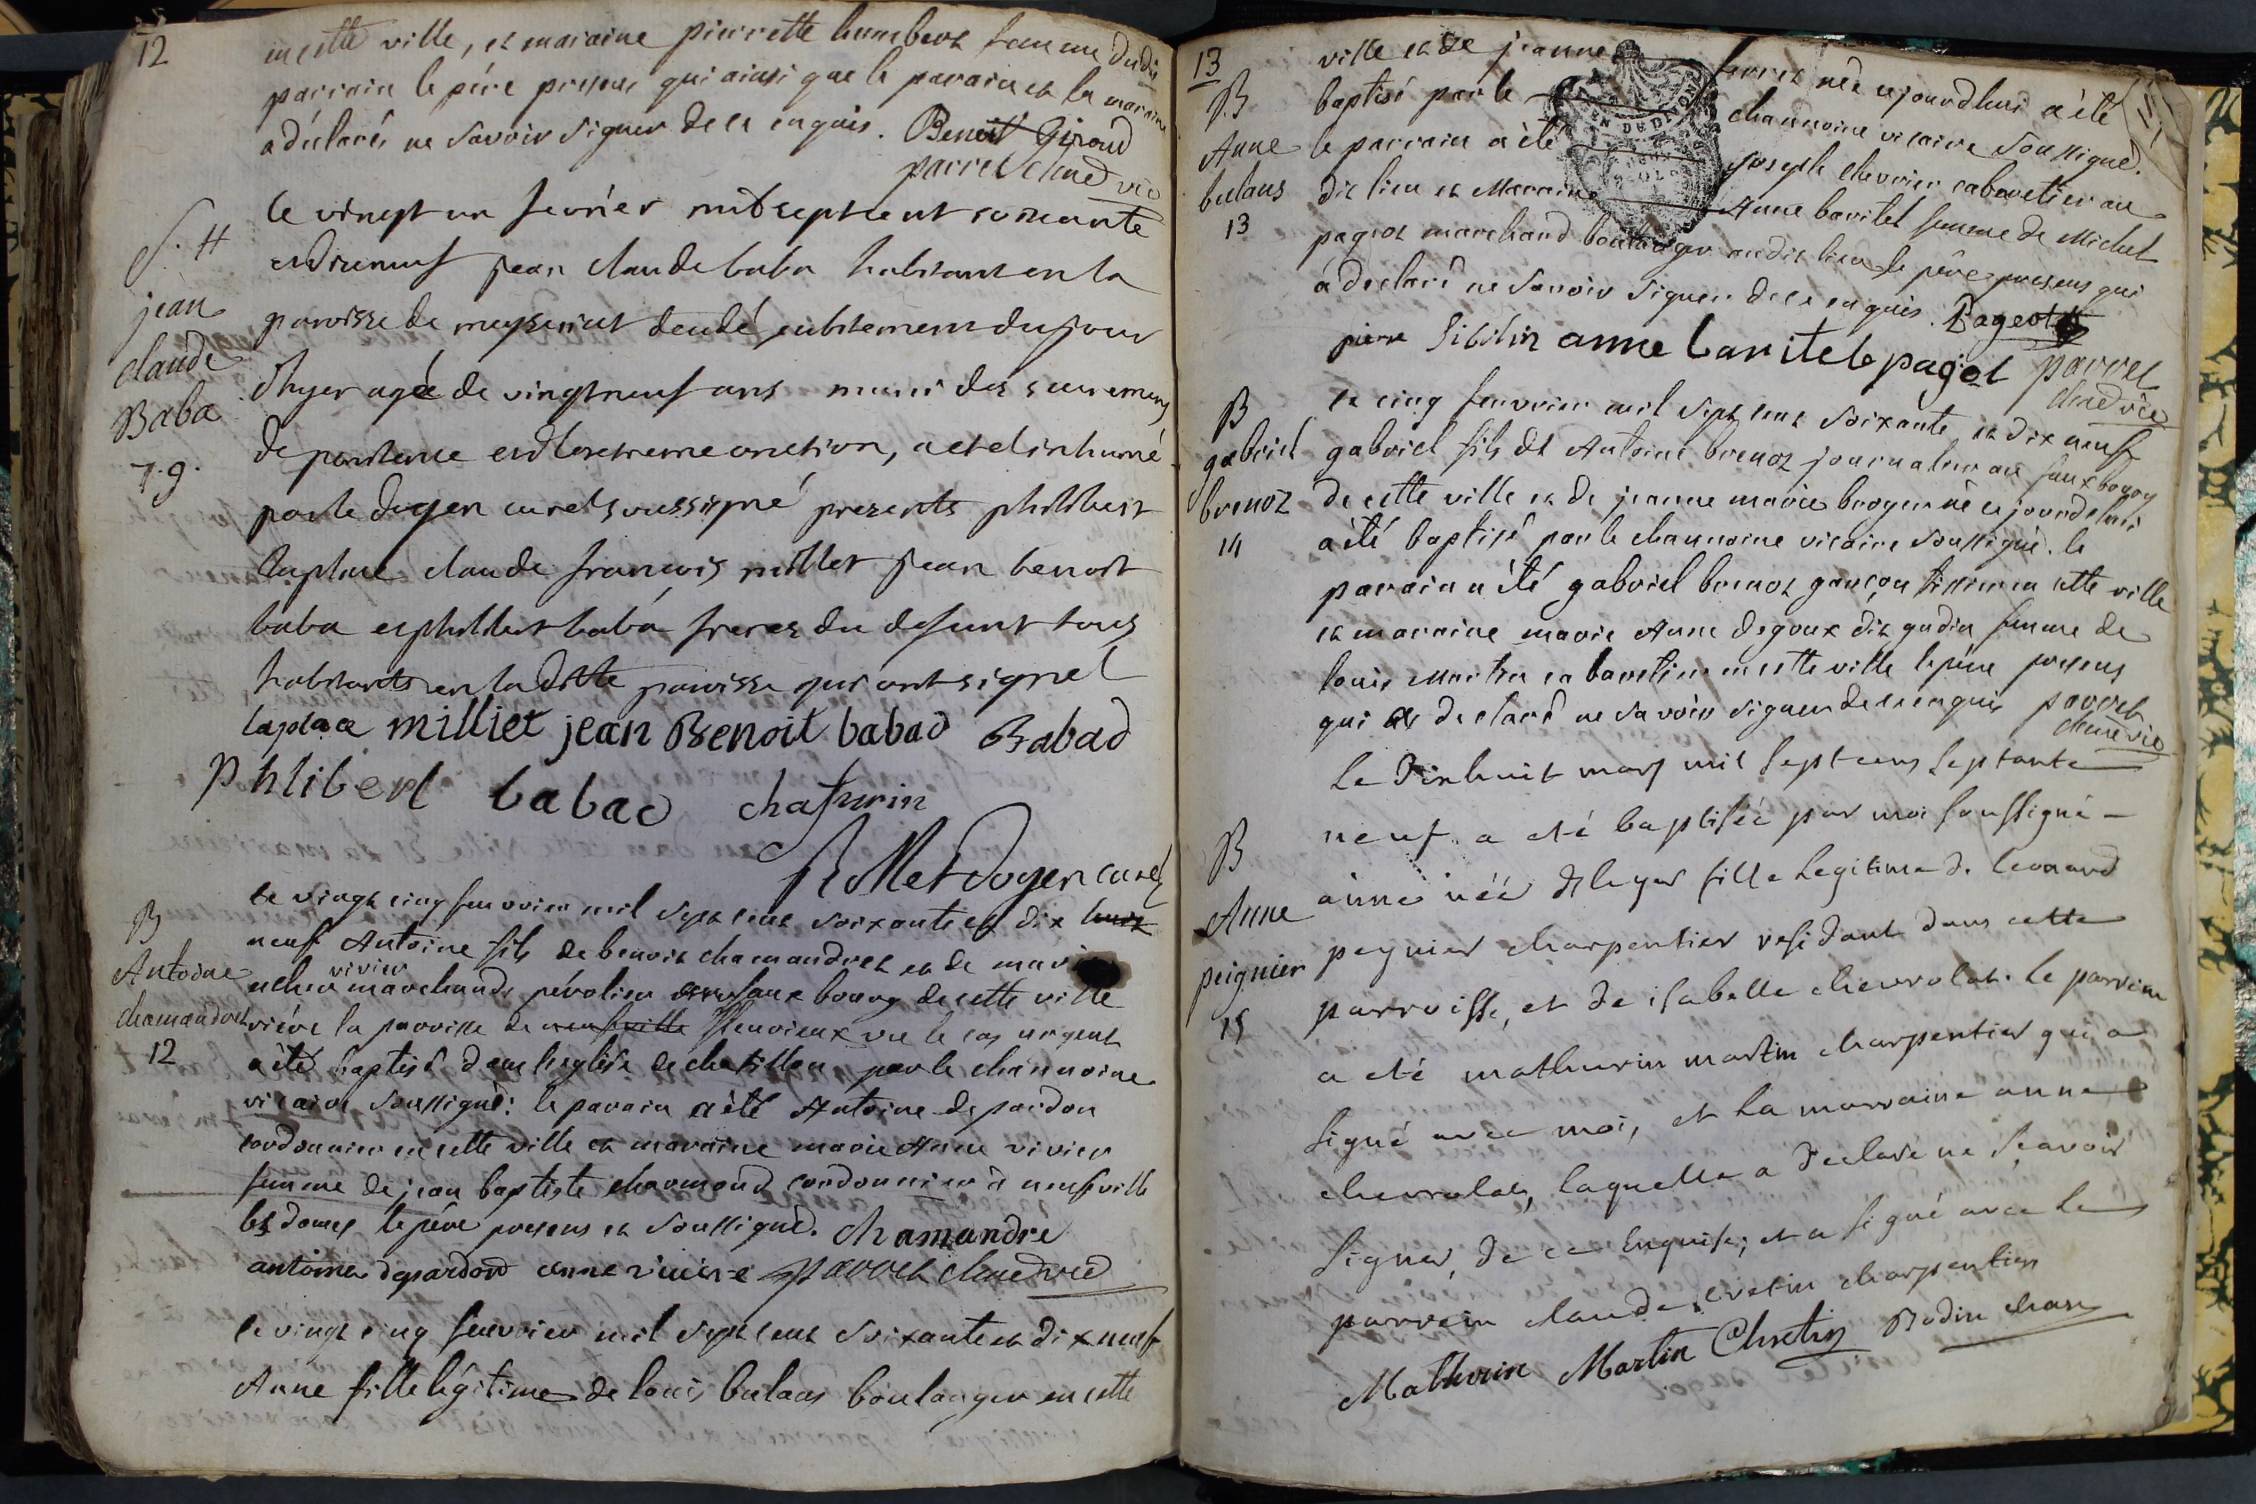 12
en cette ville, et maraine pierrette humbert femme dudit
parrain le père présent qui ainsi que le parain et la maraine
a déclarés ne savoir signer de ce enquis. Benoit Giroud
parret chne vic
S. 4
jean
claude
Baba
7.9.
le vingt un fevrier mil sept cent soixante
et dix neuf jean claude baba habitant en la
paroisse de meyseriat decedé subitement du jour
d'hyer agé de vingt neuf ans muni des sacrements
de penitence et d'extreme onction, a eté inhumé
par le doyen curé soussigné presents philibert
laplace claude francois milliet jean benoit
baba et philibert baba freres du defunt tous
habitants en la ditte paroisse qui ont signé
laplace milliet jean Benoit babad Babad
Phlibert babad chafurin
doyen curé
B
Antoine
chamandret
12
le vingt cinq fevvrier mil sept cent soixante et dix huit
neuf Antoine fils de benoit chamandret et de marie
vivier
marchands faux bourg de cette ville
rière la paroisse de neufville fleurieux vu le cas urgent
a été baptisé dans l'esglise de chatillon par le chanoine
vicaire soussigné: le parain a été Antoine depardon
cordonnier en cette ville et maraine marie Anne vivier
femme de jean baptiste charmond cordonnier à neufville
les dames le père présent et soussigné. chamandre
antoine depardond anne viviere parret chne vic
le vingt cinq fevvrier mil sept cent soixante et dix neuf
Anne fille légitime de louis bulans boulanger en cette
13
B
Anne
bulans
13
ville et de jeanne ferret née ejourdhui a été
baptisé par le chanoine vicaire soussigné.
le parrain a été joseph chevrier cabaretier au
dit lieu et Maraine Anne baritel femme de Michel
pageot marchand boulanger audit lieu le père présent qui
a declaré ne savoir signer de ce enquis. Pageot
pierre Sibilin anne baritele pagot parret
chne vic
B
gabriel
brenot
14
le cinq fevvrier mil sept cent soixante et dix neuf
gabriel fils de Antoine brenot journalier au faux bourg
de cette ville et de jeanne marie broyer né ejourdhui
a été baptisé par le chanoine vicaire soussigné. le
parain a été gabriel brenot garçon tissier en cette ville
et maraine marie Anne degoux dit gudin femme de
louis Martin cabaretier en cette ville le père présent
qui a declaré ne savoir signer de ce enquis parret
chne vic
B
Anne
peignier
15
Le dixhuit mars mil sept cens septante
neuf a eté baptisée par moi soussigné
anne née d'hyer fille legitime de leonard
peynier charpentier residant dans cette
parroisse, et de isabelle chevrolat. le parrein
a eté mathurin martin charpentier qui a
signé avec moi, et la marraine anne
chevrolat, laquelle a declaré ne sçavoir
signer, de ce enquise; et a signé avec le
parrein claude cretin charpentier
Mathurin Martin Chretin Bodin chan